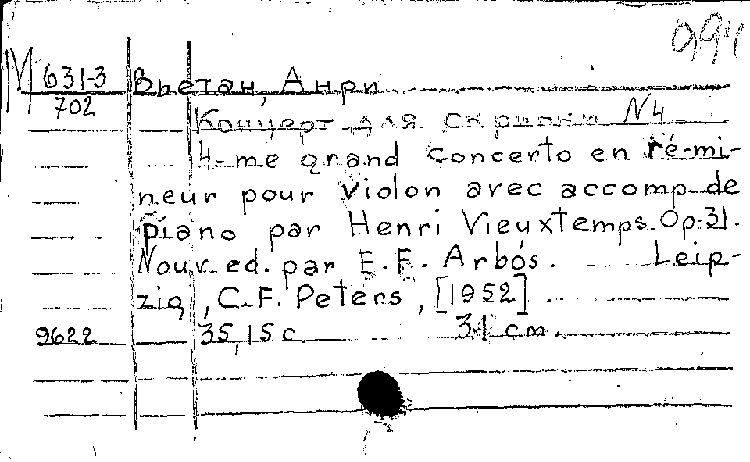 М 631-3 Вьетан, Анри
702 Концерт для скрипки N4
4-me grand Concerto en ré-mi-
neur pour violon avec accomp. de
piano par Henri Vieuxtemps. Op. 31.
Nouv. ed. par E. F. Arbós. Leip-
zig, C.F. Peters, [1952]
9622 35, 15 c 31 cm.